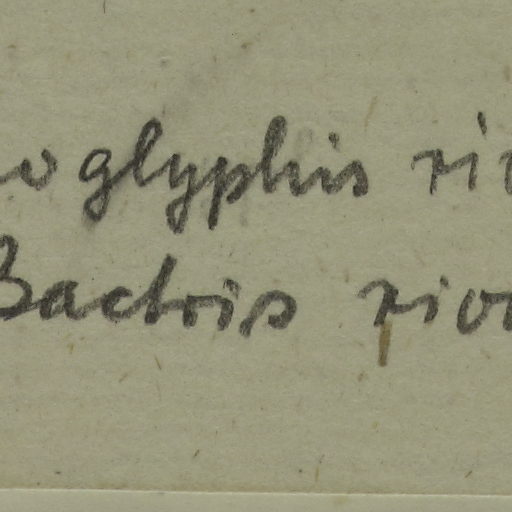 oglyphis ri
Bactris rio